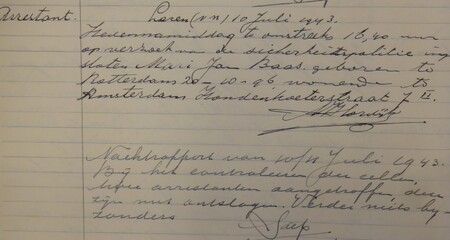 Arrestant. Laren (N.H.) 10 Juli 1943.
Hedennamiddag te omstreek 16,40 uur
op verzoek van de sicherheitspolitie inge
sloten Mari Jan Baas. geboren te
Rotterdam 20-10-96, wonende te
Amsterdam Hondenkoeterstraat 7 II.
Nachtrapport van 10/11 Juli 1943.
Bij het controleeren der cellen,
twee arrestanten aangetroffen, deze
zijn niet ontslagen. Verder niets by-
zonders